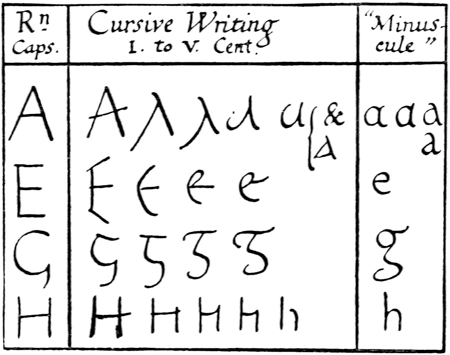 Rⁿ Caps.
Cursive Writing
I. to V. Cent.
"Minus-
cule"
A A λ λ u & a a a
A a
E E e e e e
G G g
H H H H h h h